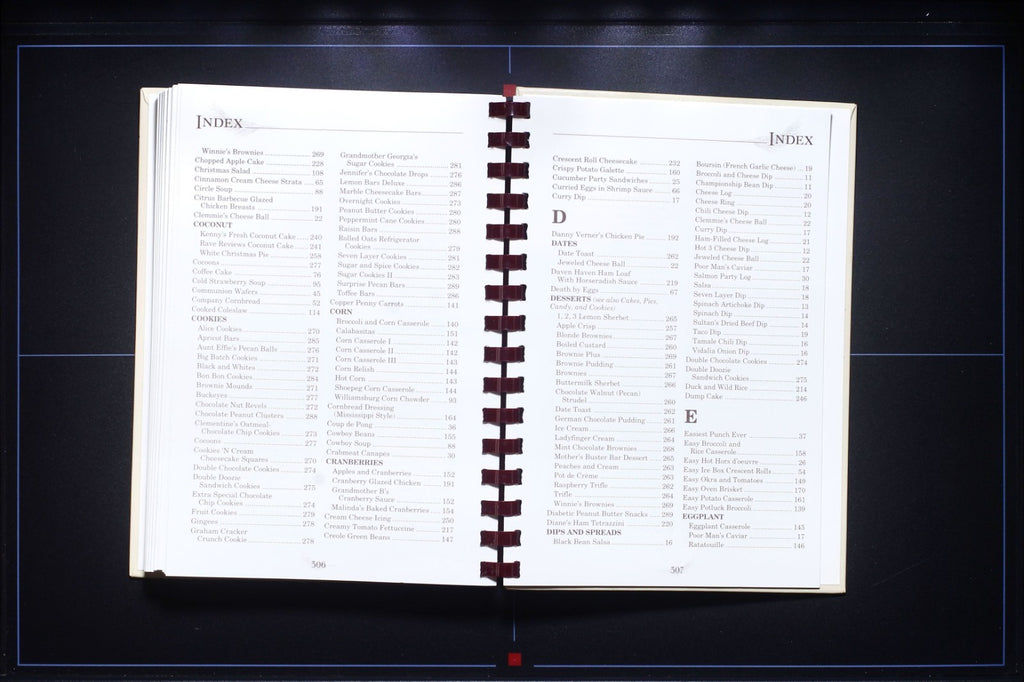 INDEX
Winnie's Brownies 269
Chopped Apple Cake 228
Christmas Salad 108
Cinnamon Cream Cheese Strata 65
Circle Soup 88
Citrus Barbecue Glazed
Chicken Breasts 191
Clemmie's Cheese Ball 22
COCONUT
Kenny's Fresh Coconut Cake 240
Rave Reviews Coconut Cake 241
White Christmas Pie 258
Cocoons 277
Coffee Cake 76
Cold Strawberry Soup 95
Communion Wafers 45
Company Cornbread 52
Cooked Coleslaw 114
COOKIES
Alice Cookies 270
Apricot Bars 285
Aunt Effie's Pecan Balls 276
Big Batch Cookies 271
Black and Whites 272
Bon Bon Cookies 284
Brownie Mounds 271
Buckeyes 277
Chocolate Nut Revels 272
Chocolate Peanut Clusters 288
Clementine's Oatmeal-
Chocolate Chip Cookies 273
Cocoons 277
Cookies 'N Cream
Cheesecake Squares 270
Double Chocolate Cookies 274
Double Doozie
Sandwich Cookies 275
Extra Special Chocolate
Chip Cookies 274
Fruit Cookies 279
Gingees 278
Graham Cracker
Crunch Cookie 278
Grandmother Georgia's
Sugar Cookies 281
Jennifer's Chocolate Drops 276
Lemon Bars Deluxe 286
Marble Cheesecake Bars 287
Overnight Cookies 273
Peanut Butter Cookies 280
Peppermint Cane Cookies 280
Raisin Bars 288
Rolled Oats Refrigerator
Cookies 279
Seven Layer Cookies 281
Sugar and Spice Cookies 282
Sugar Cookies II 283
Surprise Pecan Bars 289
Toffee Bars 286
Copper Penny Carrots 141
CORN
Broccoli and Corn Casserole 140
Calabasitas 151
Corn Casserole I 142
Corn Casserole II 142
Corn Casserole III 143
Corn Relish 144
Hot Corn 143
Shoepeg Corn Casserole 144
Williamsburg Corn Chowder 93
Cornbread Dressing
(Mississippi Style) 164
Coup de Pong 36
Cowboy Beans 155
Cowboy Soup 88
Crabmeat Canapes 30
CRANBERRIES
Apples and Cranberries 152
Cranberry Glazed Chicken 191
Grandmother B's
Cranberry Sauce 152
Malinda's Baked Cranberries 154
Cream Cheese Icing 250
Creamy Tomato Fettuccine 217
Creole Green Beans 147
506
INDEX
Crescent Roll Cheesecake 232
Crispy Potato Galette 160
Cucumber Party Sandwiches 25
Curried Eggs in Shrimp Sauce 66
Curry Dip 17
D
Danny Verner's Chicken Pie 192
DATES
Date Toast 262
Jeweled Cheese Ball 22
Daven Haven Ham Loaf
With Horseradish Sauce 219
Death by Eggs 67
DESSERTS (see also Cakes, Pies,
Candy, and Cookies)
1, 2, 3 Lemon Sherbet 265
Apple Crisp 257
Blonde Brownies 267
Boiled Custard 260
Brownie Plus 269
Brownie Pudding 261
Brownies 267
Buttermilk Sherbet 266
Chocolate Walnut (Pecan)
Strudel 260
Date Toast 262
German Chocolate Pudding 261
Ice Cream 266
Ladyfinger Cream 264
Mint Chocolate Brownies 268
Mother's Buster Bar Dessert 265
Peaches and Cream 263
Pot de Crème 263
Raspberry Trifle 262
Trifle 264
Winnie's Brownies 269
Diabetic Peanut Butter Snacks 289
Diane's Ham Tetrazzini 220
DIPS AND SPREADS
Black Bean Salsa 16
Boursin (French Garlic Cheese) 19
Broccoli and Cheese Dip 13
Championship Bean Dip 11
Cheese Log 20
Cheese Ring 20
Chili Cheese Dip 12
Clemmie's Cheese Ball 22
Curry Dip 17
Ham-Filled Cheese Log 21
Hot 3 Cheese Dip 12
Jeweled Cheese Ball 22
Poor Man's Caviar 17
Salmon Party Log 30
Salsa 18
Seven Layer Dip 18
Spinach Artichoke Dip 13
Spinach Dip 14
Sultan's Dried Beef Dip 14
Taco Dip 19
Tamale Chili Dip 16
Vidalia Onion Dip 16
Double Chocolate Cookies 274
Double Doozie
Sandwich Cookies 275
Duck and Wild Rice 214
Dump Cake 246
E
Easiest Punch Ever 37
Easy Broccoli and
Rice Casserole 158
Easy Hot Hors d'oeuvre 26
Easy Ice Box Crescent Rolls 54
Easy Okra and Tomatoes 149
Easy Oven Brisket 170
Easy Potato Casserole 161
Easy Potluck Broccoli 139
EGGPLANT
Eggplant Casserole 145
Poor Man's Caviar 17
Ratatouille 146
507